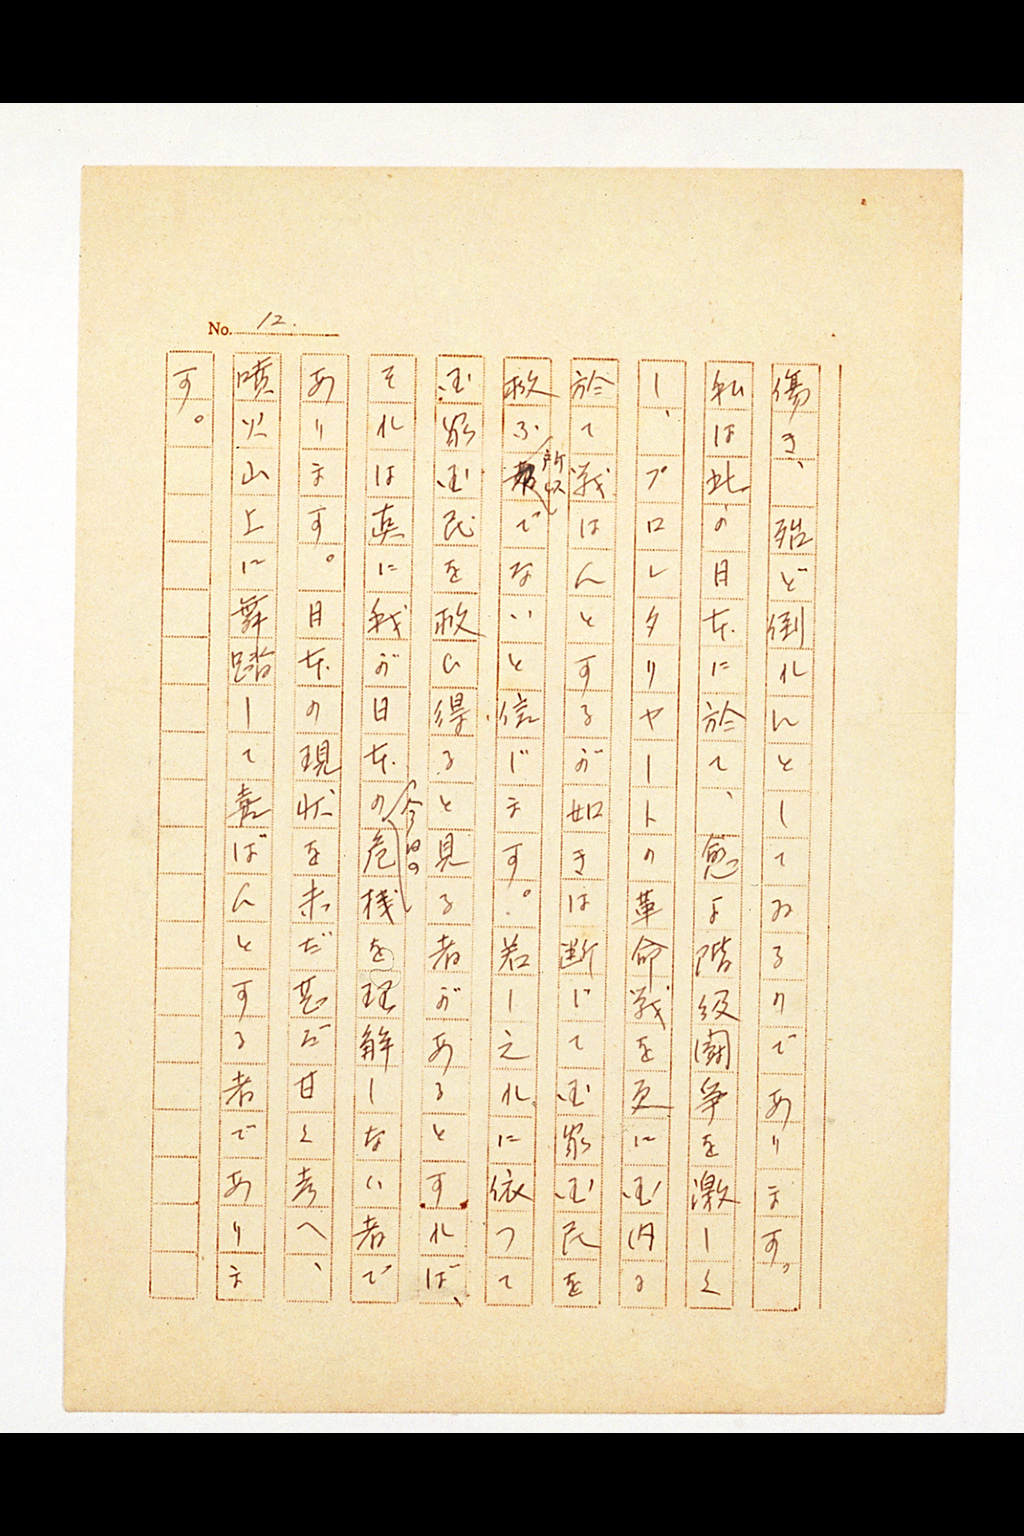 No. 12.
傷き、殆ど倒れんとしてゐるのであります。
私は此の日本に於て、愈よ階級闘争を激しく
し、プロレタリヤートの革命戦を更に国内に
於て戦はんとするが如きは断じて国家国民を
救ふ所以でないと信じます。若し之れに依つて
国家国民を救ひ得ると見る者があるとすれば、
それは真に我が日本の今日の危機を理解しない者で
あります。日本の現状を未だ甚だ甘く考へ、
噴火山上に舞踏して喜ばんとする者でありま
す。